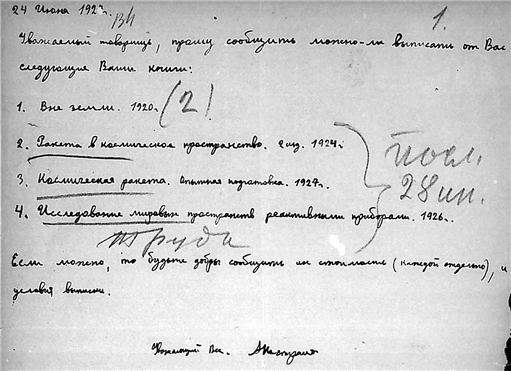 24 Июня 192
1.
Уважаемый товарищ, прошу сообщить можно-ли выписать от Вас
следующие Ваши книги:
1. Вне земли. 1920г. (2)
2. Ракета в космическое пространство. 2 изд. 1924г.
3. Космическая ракета. Опытная подготовка. 1927г.
4. Исследование мировых пространств реактивными приборами. 1926г.
посл.
28 ин.
труда
Если можно, то будьте добры сообщить их стоимость (каждой отдельно), и
условия выписки.
Уважающий Вас.